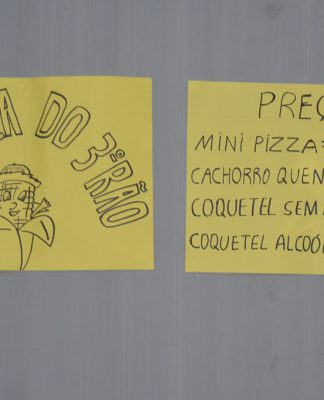 DO 3º RÃO
PREÇ
MINI PIZZA=
CACHORRO QUEN
COQUETEL SEM
COQUETEL ALCOÓ